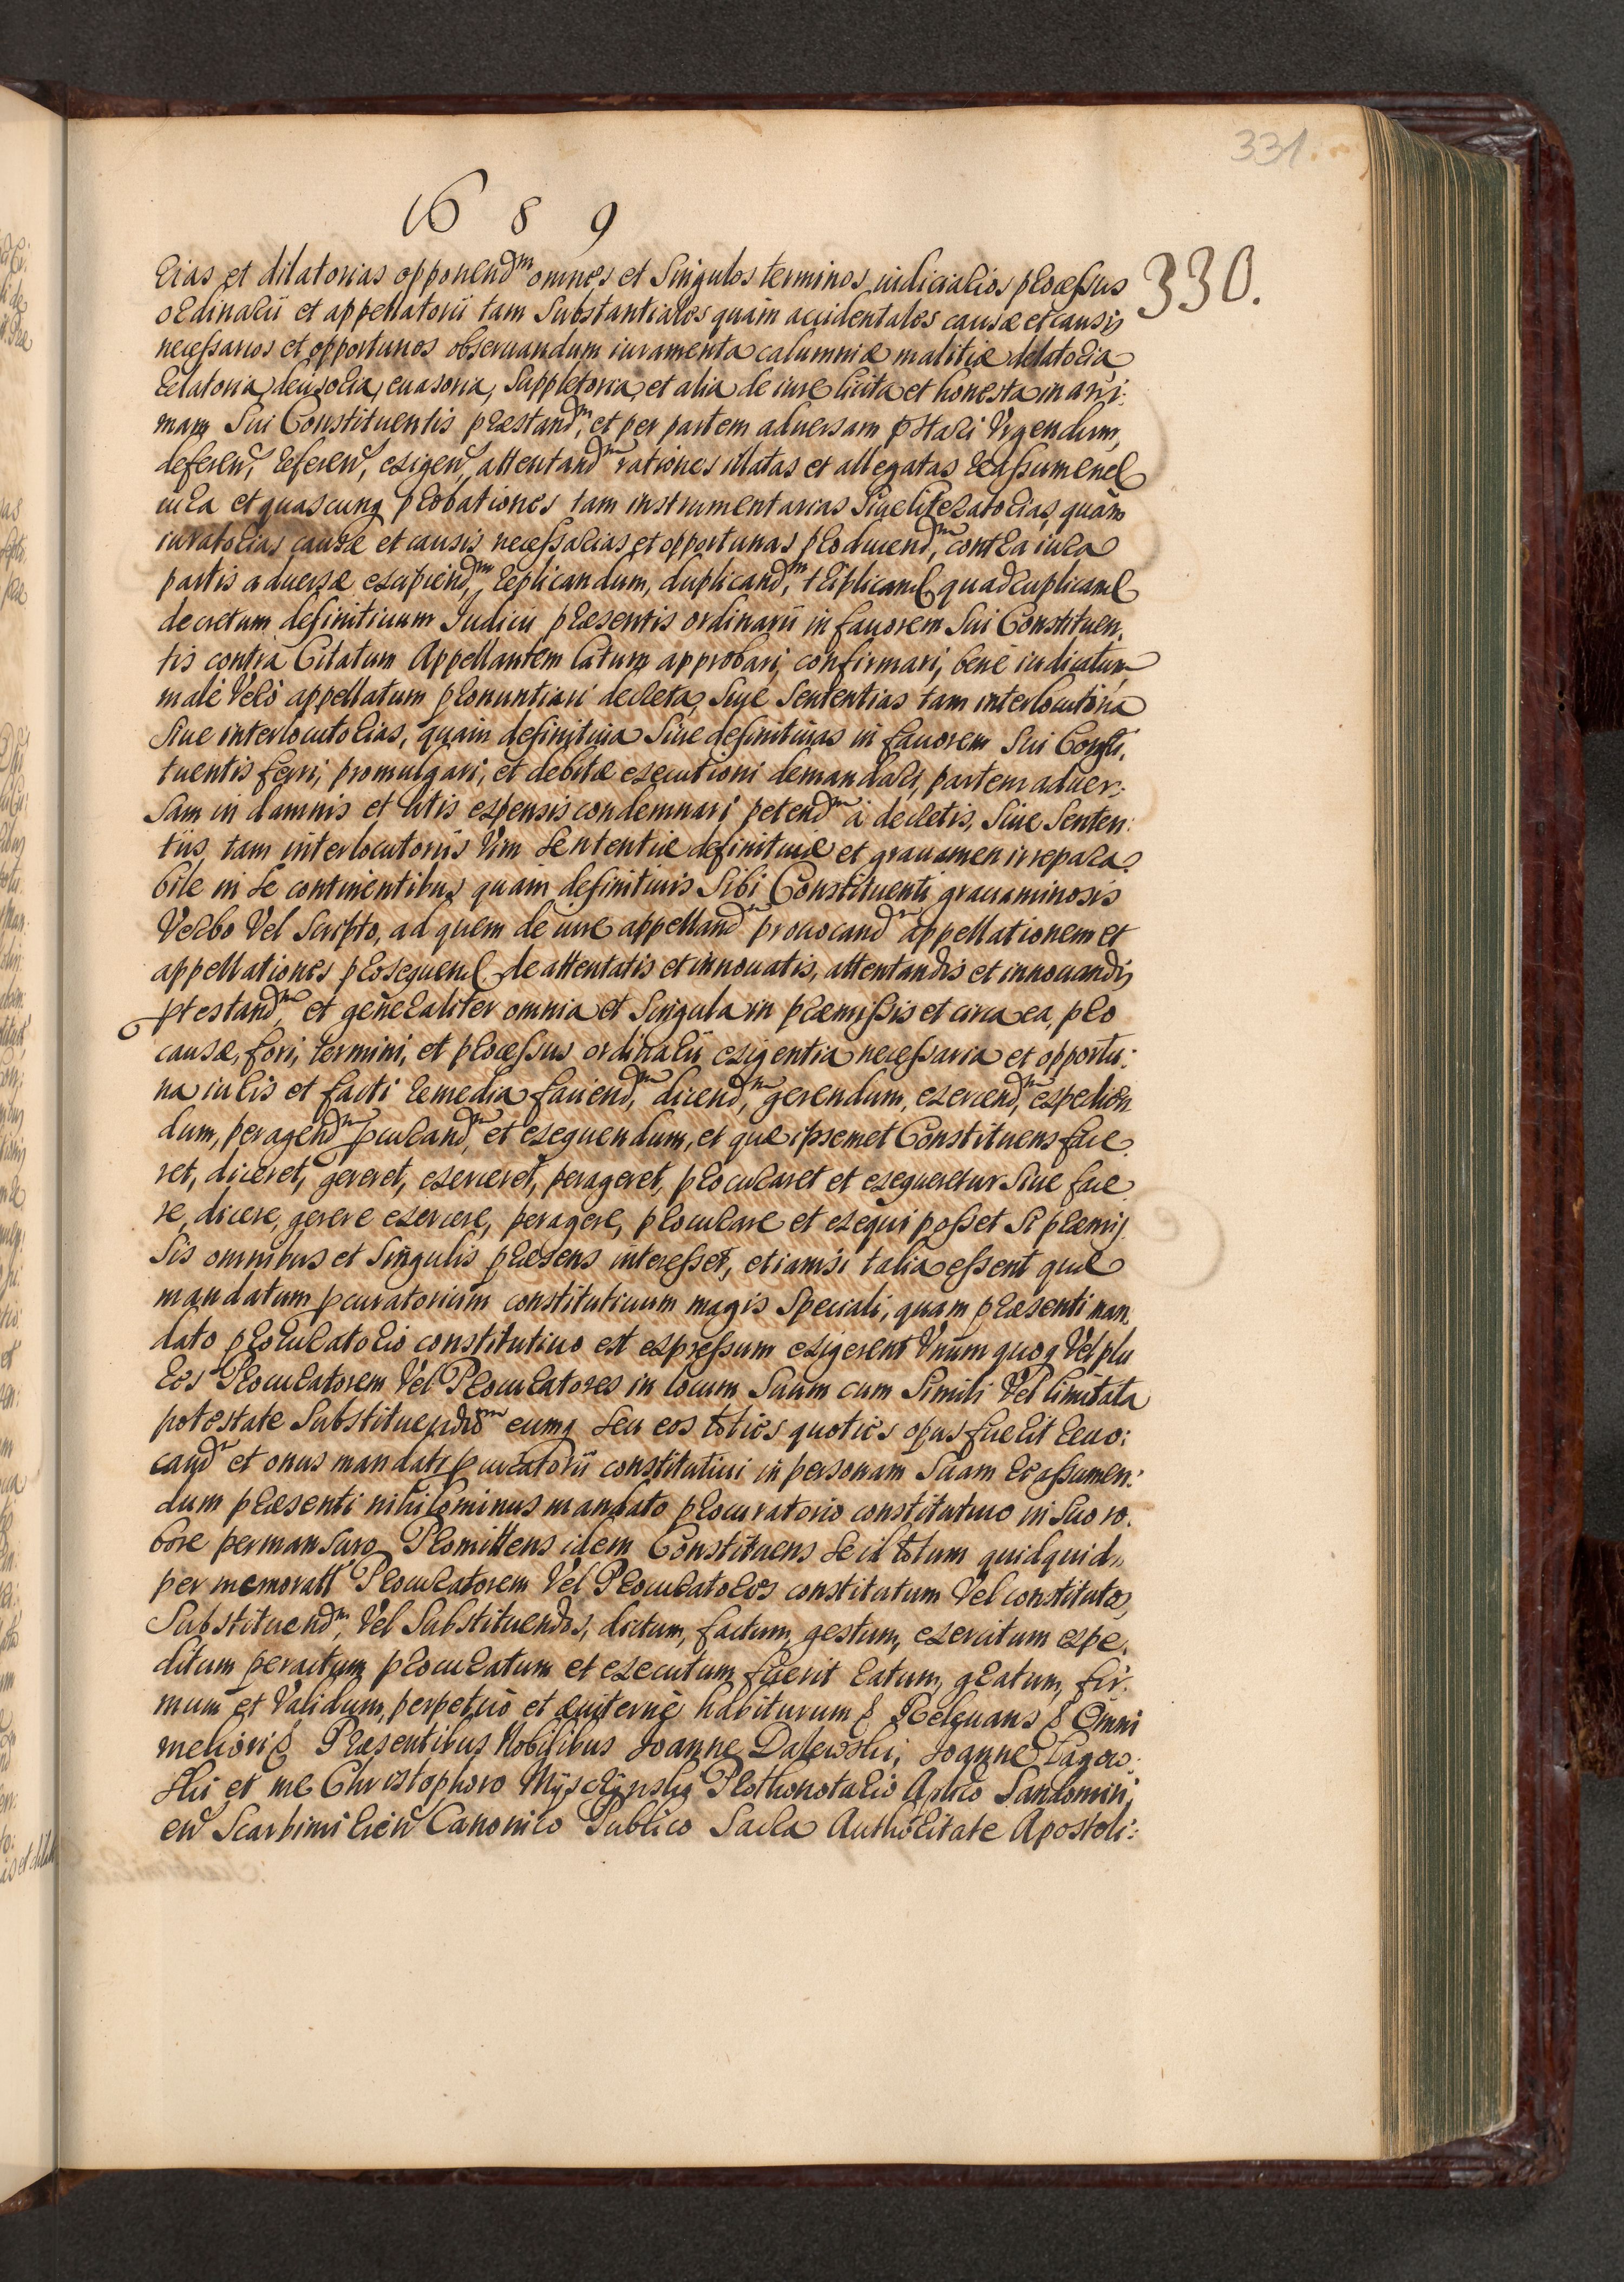 331.
1689
330.
rias et dilatorias opponend^m omnes et Singulos terminos iudiciarios processus
ordinarii et appellatorii tam Substantiales quàm accidentales causæ et causis
necessarios et opportunos obseruandum iuramenta calumniæ malitiæ delatoria
relatoria, decisoria, euasoria, Suppletoria, et alia de iure licita et honesta in ani:
mam Sui Constituentis præstand^m, et per partem aduersam præstari Vrgendum,
deferen, referen, exigen, attentand^m rationes illatas et allegatas reassumend
iura et quascunq probationes tam instrumentarias Siue literatorias, quàm
iuratorias causæ et causis necessarias et opportunas producend^m, contra iura
partis aduersæ excipiend^m, replicandum, duplicand^m, triplicand quadruplicand
decretum definitiuum Iudicii præsentis ordinarii in fauorem Sui Constituen,
tis contra Citatum Appellantem latum approbari, confirmari, benè iudicatum
malè Verò appellatum pronuntiari decreta, Siue Sententias tam interlocutoria
Siue interlocutorias, quàm definitiua Siue definitiuas in fauorem Sui Consti,
tuentis ferri, promulgari, et debitæ executioni demandari, partem aduer:
Sam in damnis et litis expensis condemnari petend^m à decretis, Siue Senten:
tiis, tam interlocutoriis Vim Sententiæ definitiuæ et grauamen irrepara:
bile in Se continentibus, quam definitiuis Sibi Constituenti grauaminosis
Verbo Vel Scripto, ad quem de iure appelland^m prouocand^m appellationem et
appellationes prosequend de attentatis et innouatis, attentandis et innouandis
ptestand^m, et generaliter omnia et Singula in præmissis et circa ea, pro
causæ, fori, termini, et processus ordinarii exigentia necessaria et opportu:
na iuris et facti remedia faciend^m, dicend^m, gerendum, exercend^m, expedien
dum, peragend^m pcurand^m, et exequendum, et quæ ipsemet Constituens face.
ret, diceret, gereret, exerceret, perageret, procuraret et exequeretur Siue face
re, dicere, gerere exercere, peragere, procurare et exequi posset Si præmis
Sis omnibus et Singulis præsens interesset, etiamsi talia essent quæ
mandatum pcuratorium constitutiuum magis Speciali, quam præsenti man,
dato procuratorio constitutiuo est expressum exigerent Vnum quoq Vel plu
res Procuratorem Vel Procuratores in locum Suum cum Simili Vel limitata
potestate Substituendis^m eumq Seu eos toties quoties opus fuerit reuo:
cand^m et onus mandati pcuratorii constitutiui in personam Suam reassumen:
dum præsenti nihilominus mandato procuratorio constitutiuo in Suo ro.
bore permansuro. Promittens idem Constituens Se id totum quidquid
per memoratt Procuratorem Vel Procuratores constitutum Vel constitutos,
Substituend^m, Vel Substituendos, dictum, factum, gestum, exercitum expe,
ditum peractum procuratum et executum fuerit ratum, gratum, fir:
mum et Validum, perpetuò et æuiternè habiturum & Releuans & Omni
meliori & Præsentibus Nobilibus Ioanne Dalewski, Ioanne Łagow:
ski et me Christophoro Myschÿnskj Prothonotario Aplico Sandomiri,
en Scarbimirien Canonico Publico Sacra Authoritate Apostoli: